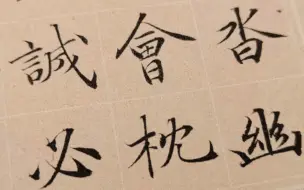 誠會沓
必枕幽